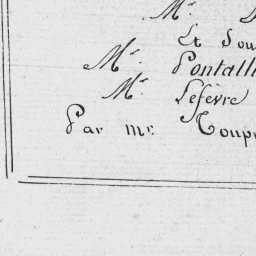 Mr.
Et Sou
Mr. Pontall
Mr. Lefèvre
Par mr. Toup